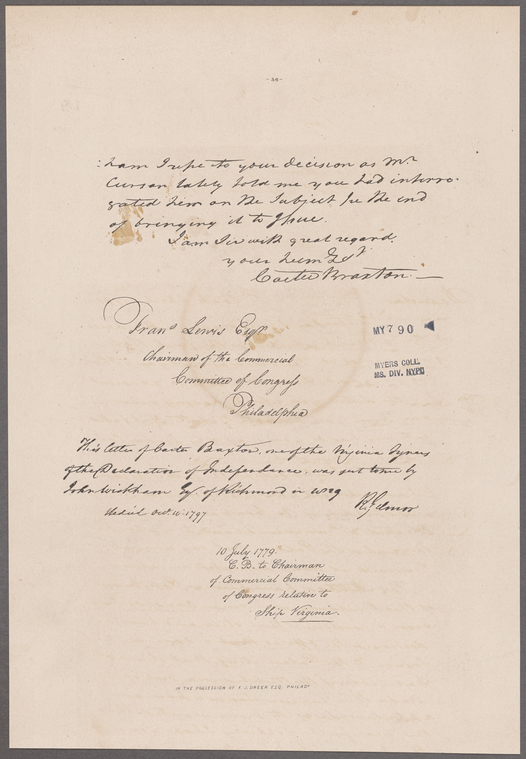 - 34 -
I am I refe to your decision as Mr
Cursan lately told me you had interro-
gated him on the Subject for the end
of bringing it to Issue.
I am Sir with great regard.
your hum
Carter Braxton
Frans Lewis Esqr
Chairman of the Commercial
Committee of Congress
Philadelphia
MY 7 90
MYERS COLL.
MS. DIV. NYPL
This letter of Carter Baxton, one of the Virginia Signers
of the Declaration of Independance, was sent to me by
John Wickham Esq. of Richmond in
R. Gilmor
He died Oct. 10. 1797
10 July 1779.
C. B. to Chairman
of Commercial Committee
of Congress relative to
Ship Virginia.
IN THE POSSESSION OF F. J. DREER, ESQ. PHILADA